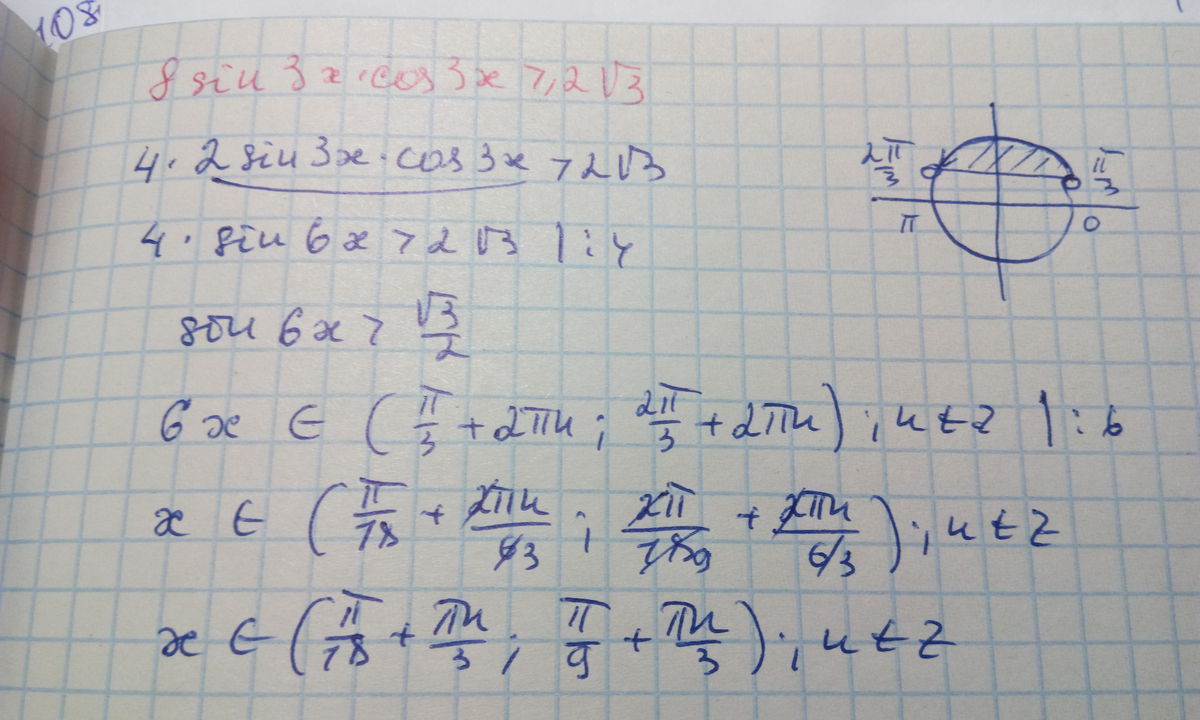 108
8 sin 3x · cos 3x > 2√3
4 · 2 sin 3x · cos 3x > 2√3
4 · sin 6x > 2√3 | : 4
sin 6x > √3/2
2π/3 π/3
π 0
6x ∈ (π/3 + 2πn ; 2π/3 + 2πn) ; n ∈ Z | : 6
x ∈ (π/18 + 2πn/6 3 ; 2π/18 9 + 2πn/6 3) ; n ∈ Z
x ∈ (π/18 + πn/3 ; π/9 + πn/3) ; n ∈ Z